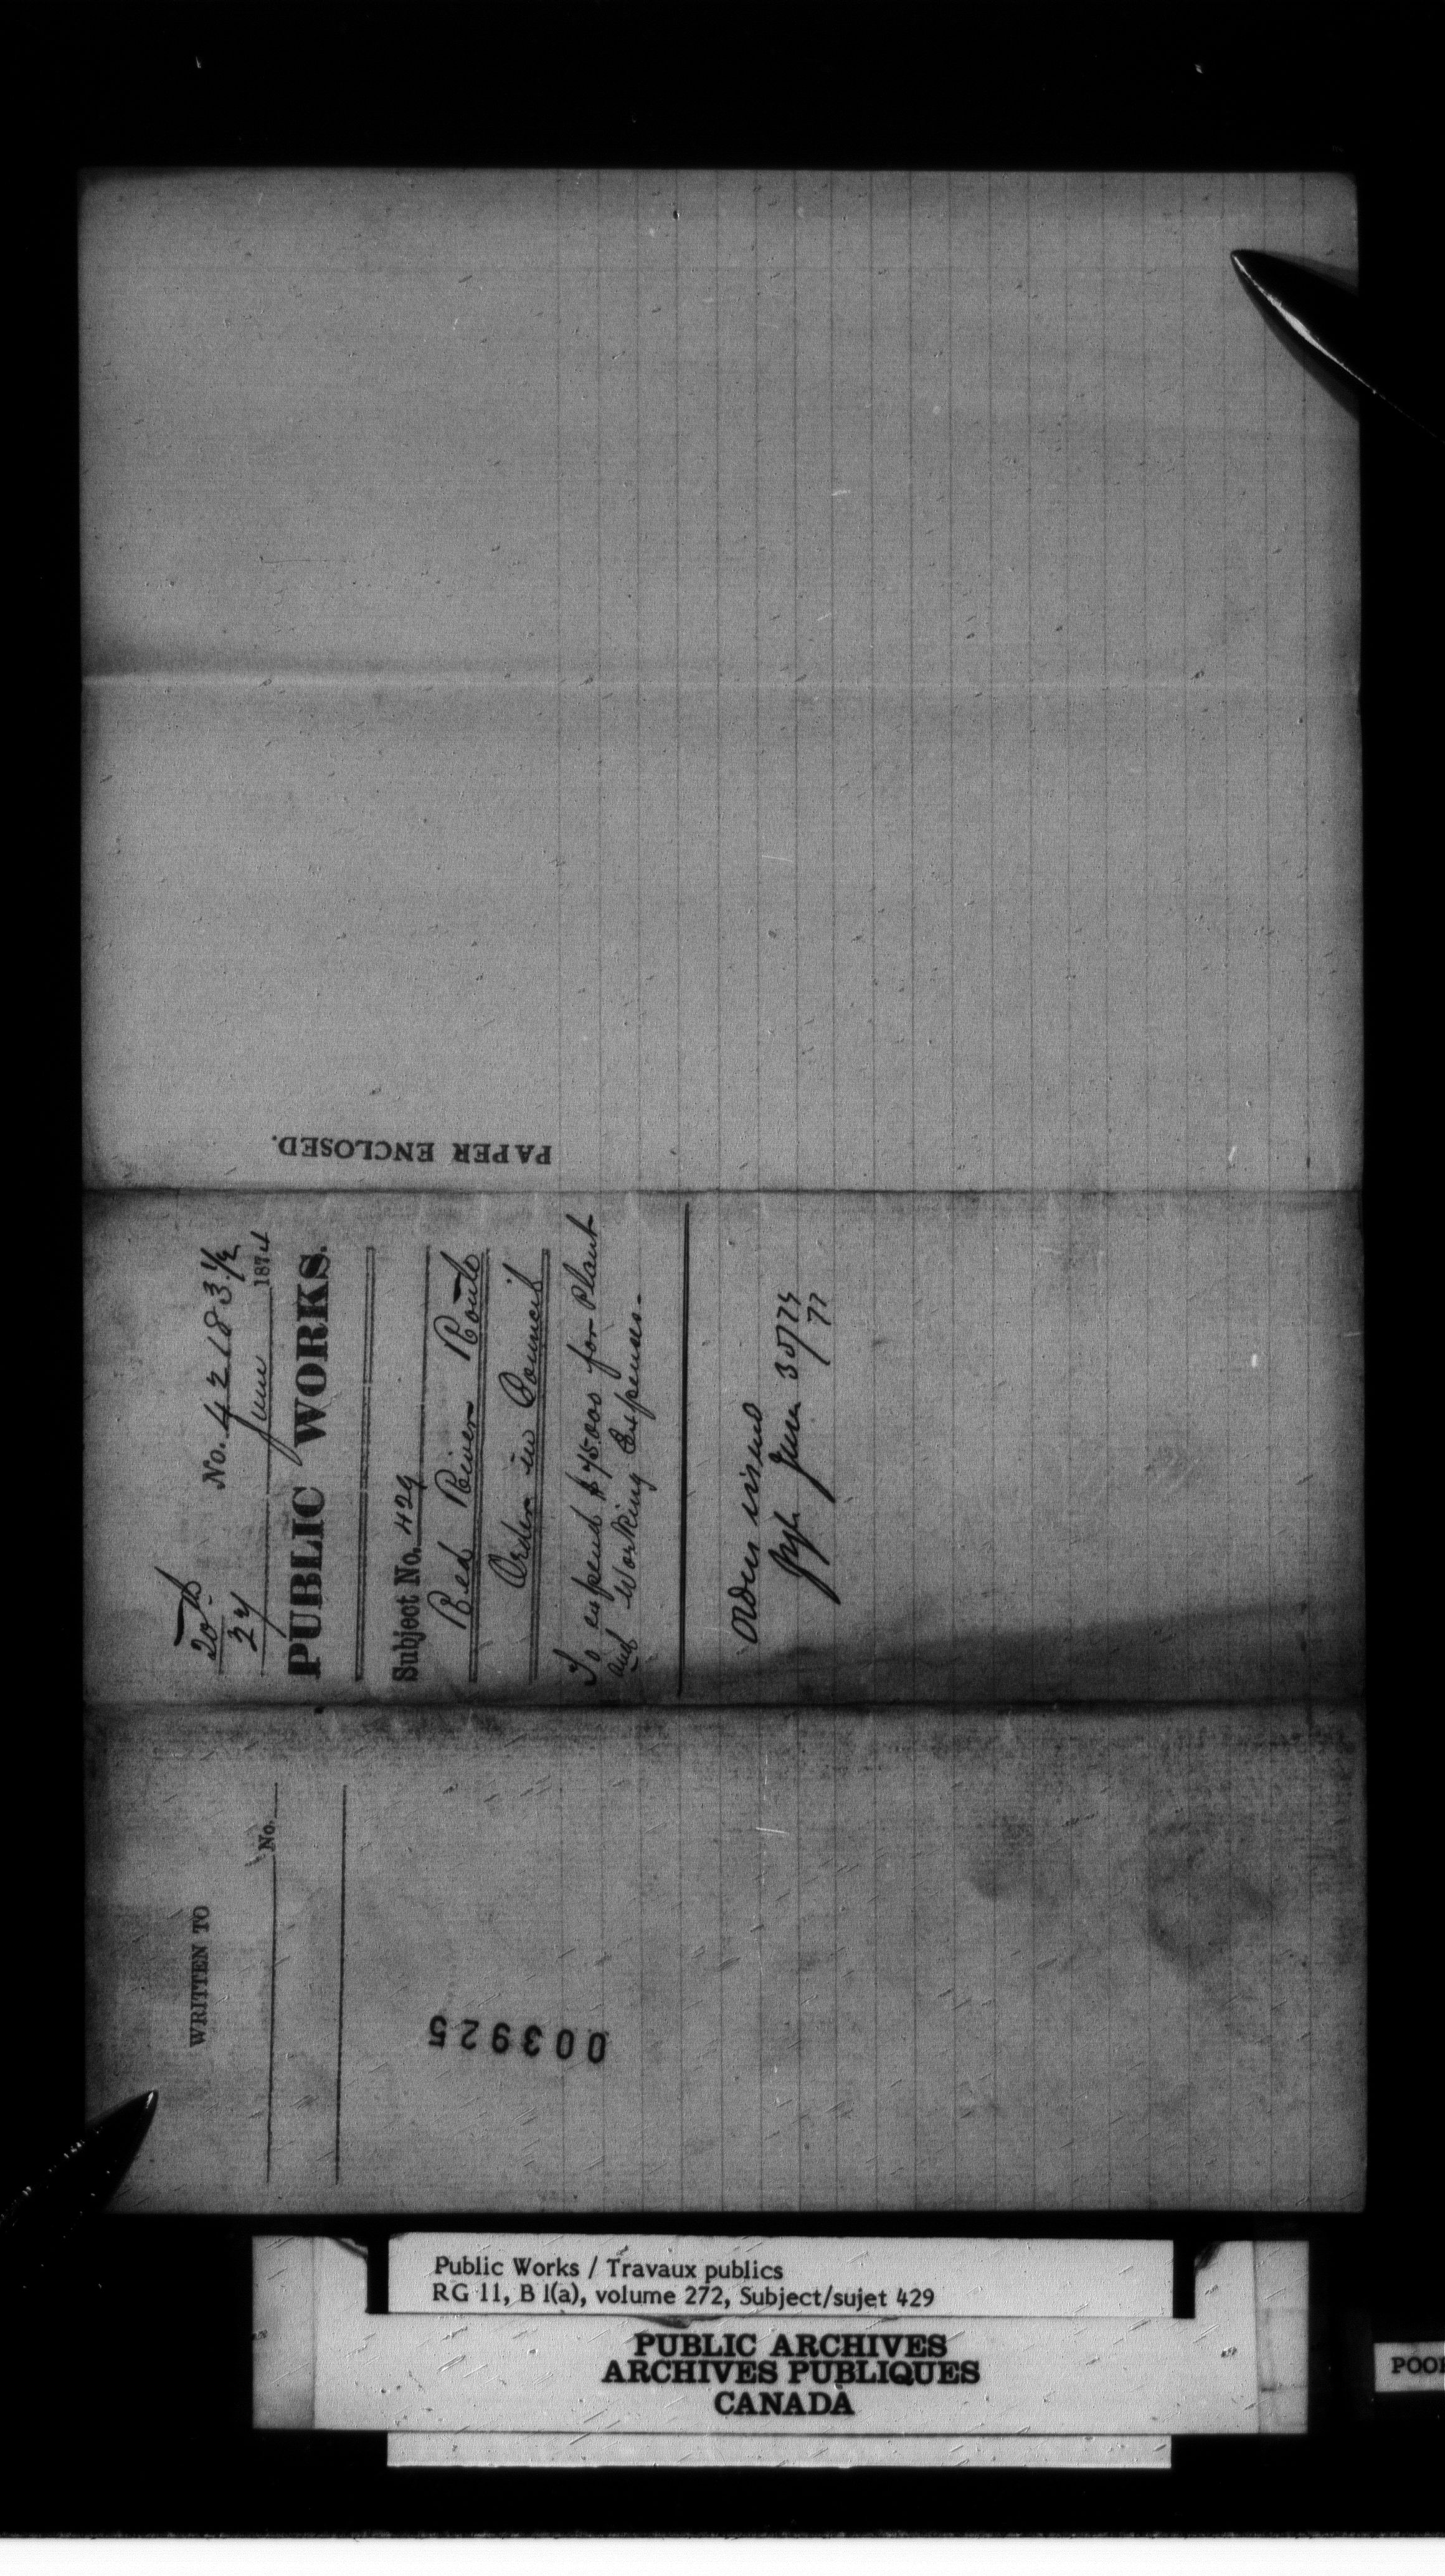 PAPER ENCLOSED.
20th
27
No. 42183½
June 1874
PUBLIC WORKS.
Subject No. 429
Red River Route
Order in Council
To expend $75000 for Plant
and Working Expenses.
Orders issued
June 30/74
WRITTEN TO
No.
003925
Public Works / Travaux publics
RG 11, B 1(a), volume 272, Subject/sujet 429
PUBLIC ARCHIVES
ARCHIVES PUBLIQUES
CANADA